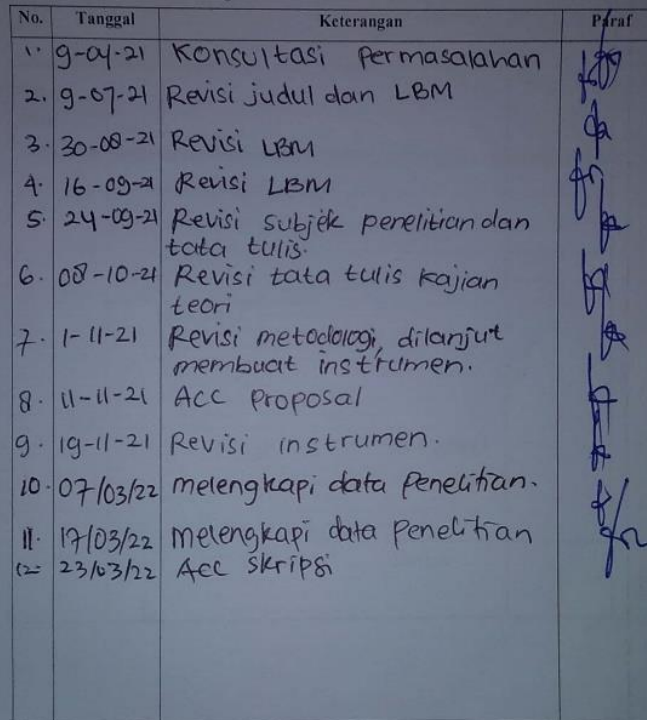 No. Tanggal Keterangan Paraf
1. 9-04-21 Konsultasi Permasalahan
2. 9-07-21 Revisi judul dan LBM
3. 30-08-21 Revisi LBM
4. 16-09-21 Revisi LBM
5. 24-09-21 Revisi subjek penelitian dan
tata tulis.
6. 08-10-21 Revisi tata tulis kajian
teori
7. 1-11-21 Revisi metodologi, dilanjut
membuat instrumen.
8. 11-11-21 ACC Proposal
9. 19-11-21 Revisi instrumen.
10. 07/03/22 melengkapi data Penelitian.
11. 17/03/22 melengkapi data Penelitian
12. 23/03/22 Acc Skripsi